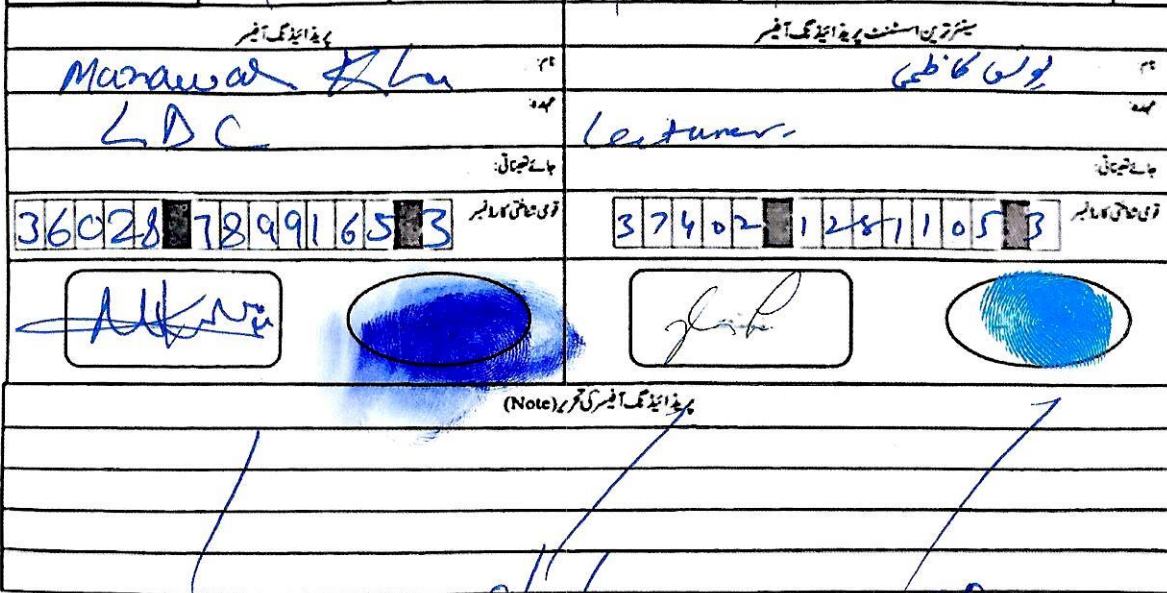 سینئر ترین اسسٹنٹ پریذائیڈنگ آفیسر
نام یونس کاظمی
عہدہ: Lecturer.
جائے تعیناتی:
قومی شناختی کارڈ نمبر 37402 1281105 3
پریذائیڈنگ آفیسر
نام Manawar Khan
عہدہ: LDC
جائے تعیناتی:
قومی شناختی کارڈ نمبر 36028 7899165 3
پریذائیڈنگ آفیسر کی تحریر (Note)